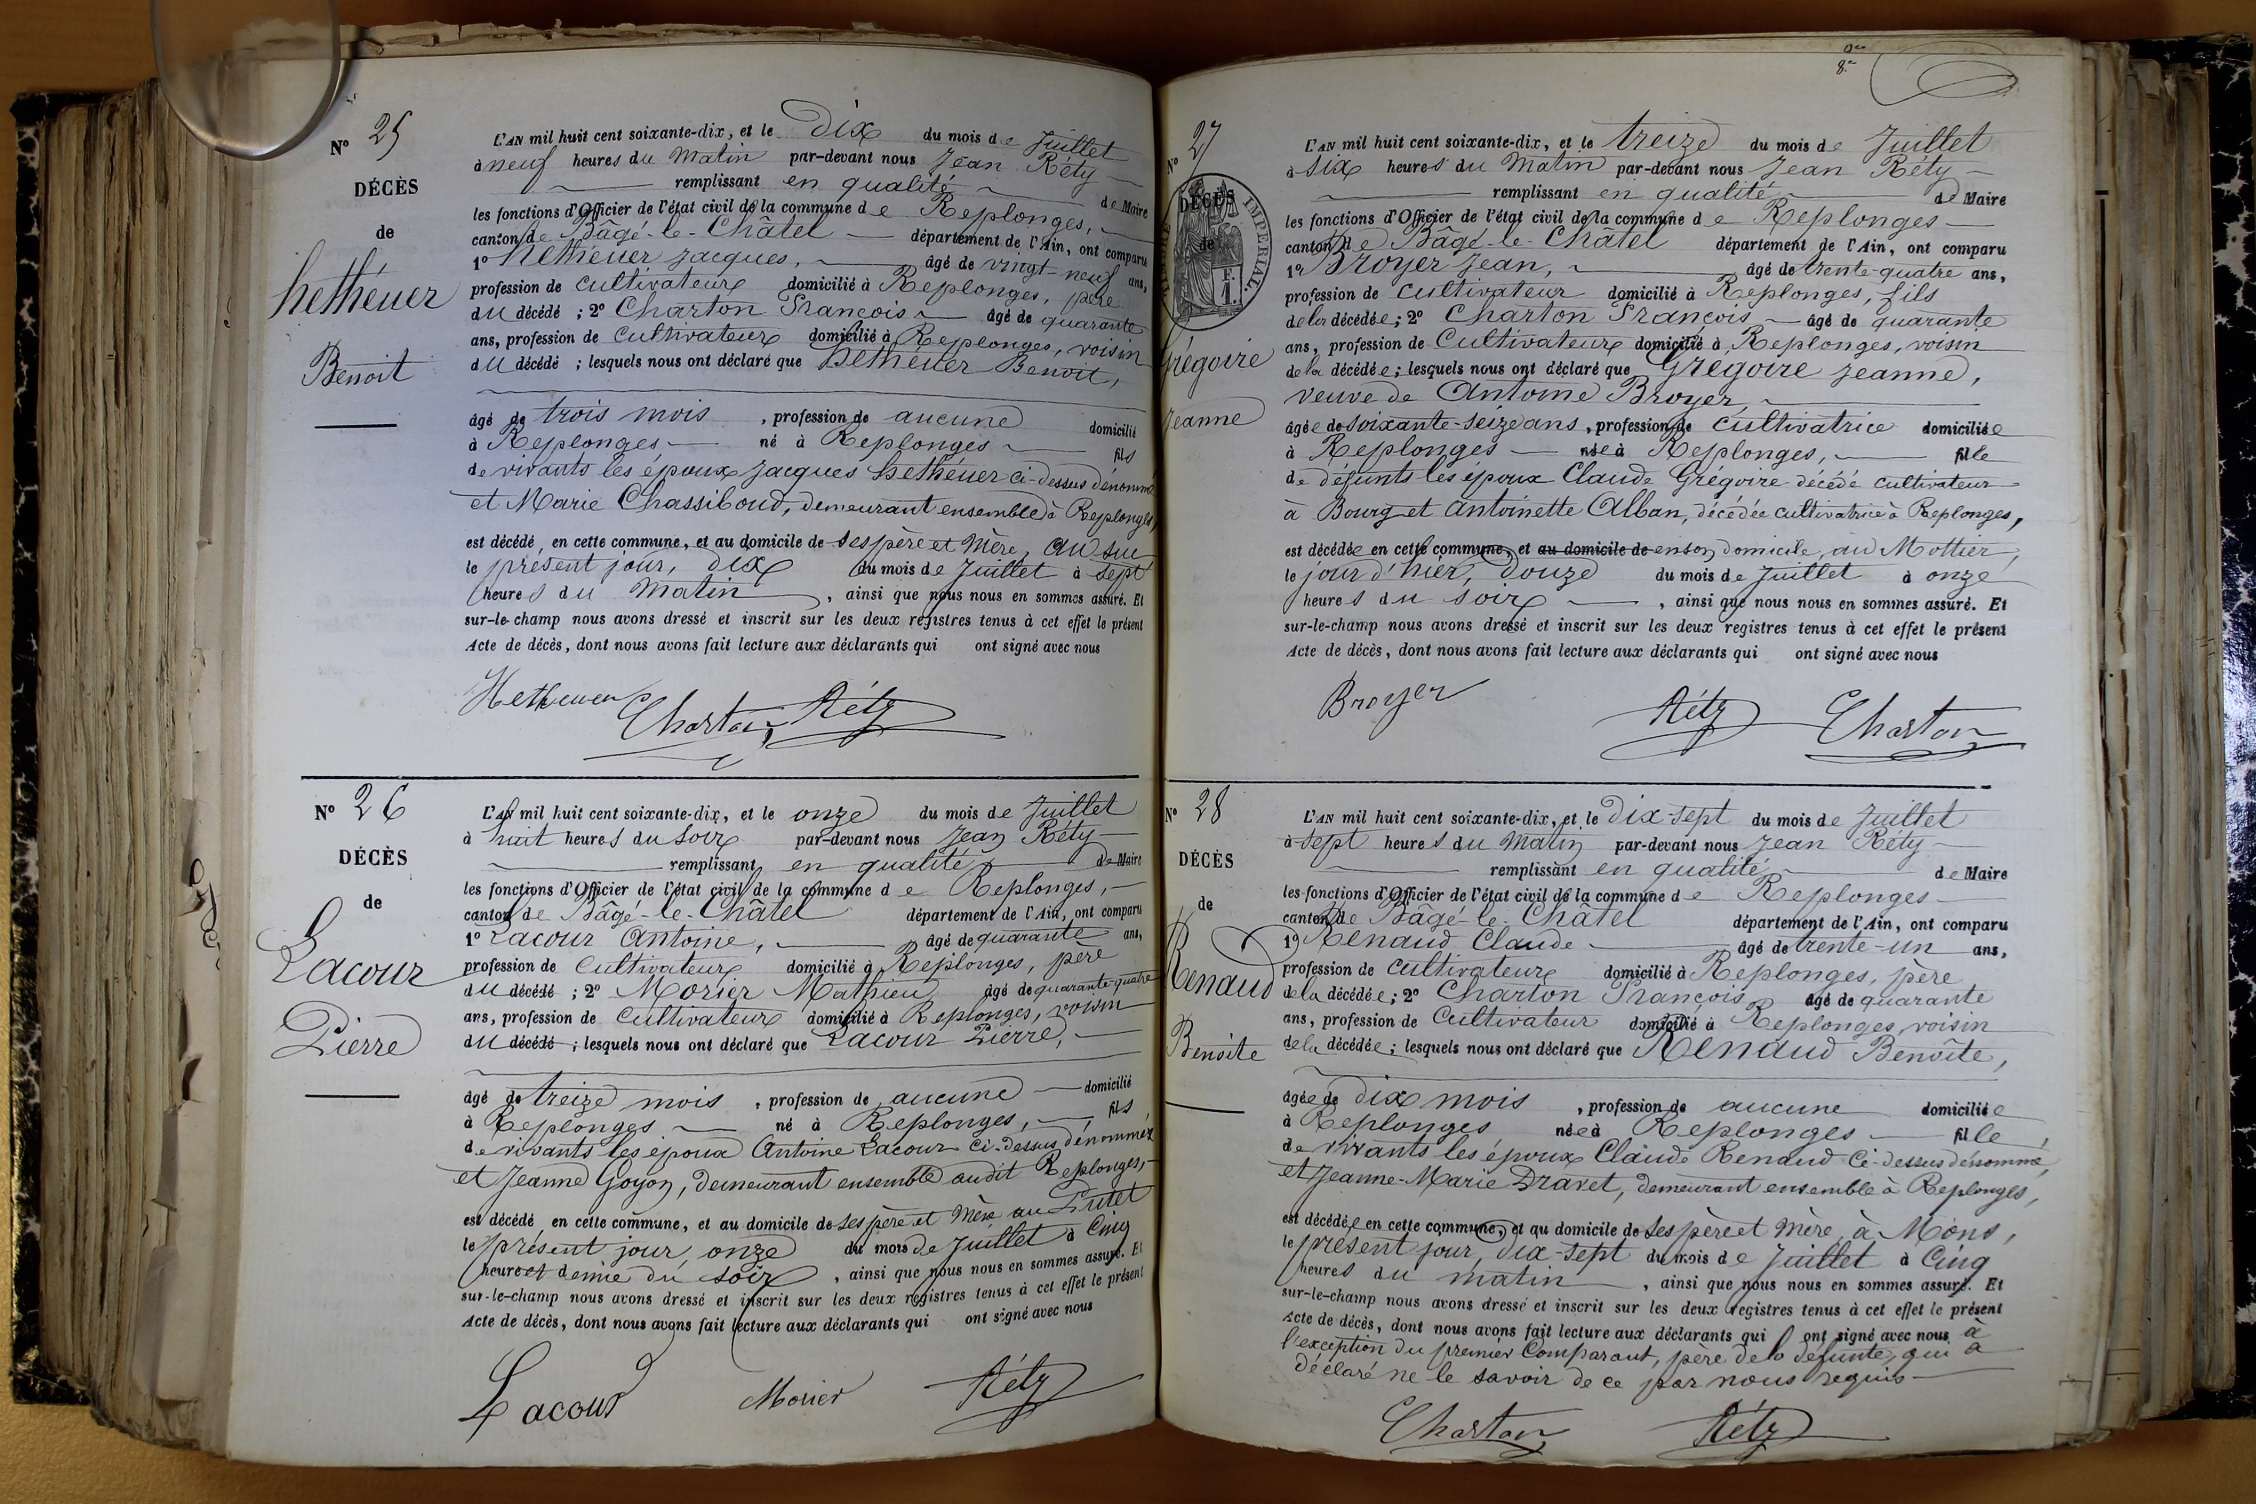 N° 25
DÉCÈS
de
hethéuer
Benoit
L'AN mil huit cent soixante-dix, et le Dix du mois de Juillet
à neuf heures du Matin par-devant nous Jean Réty
remplissant en qualité de Maire
les fonctions d'Officier de l'état civil de la commune de Replonges,
canton de Bâgé-le-Châtel département de l'Ain, ont comparu
1° hethéuer Jacques, âgé de vingt-neuf ans,
profession de cultivateur domicilié à Replonges, père
du décédé ; 2° Charton François âgé de quarante
ans, profession de cultivateur domicilié à Replonges, voisin
du décédé ; lesquels nous ont déclaré que hethéuer Benoit,
âgé de trois mois, profession de aucune domicilié
à Replonges né à Replonges fils
de vivants les époux Jacques hethéuer ci-dessus dénommé
et Marie Chassiboud, demeurant ensemble à Replonges,
est décédé, en cette commune, et au domicile de ses père et Mère, au
le présent jour, dix du mois de Juillet à sept
heures du Matin, ainsi que nous nous en sommes assuré. Et
sur-le-champ nous avons dressé et inscrit sur les deux registres tenus à cet effet le présent
Acte de décès, dont nous avons fait lecture aux déclarants qui ont signé avec nous
Hetheuer Charton Réty
N° 26
DÉCÈS
de
Lacour
Pierre
L'AN mil huit cent soixante-dix, et le onze du mois de Juillet
à huit heures du Soir par-devant nous Jean Réty
remplissant en qualité de Maire
les fonctions d'Officier de l'état civil de la commune de Replonges,
canton de Bâgé-le-Châtel département de l'Ain, ont comparu
1° Lacour Antoine, âgé de quarante ans,
profession de cultivateur domicilié à Replonges, père
du décédé ; 2° Morier Mathieu âgé de quarante-quatre
ans, profession de cultivateur domicilié à Replonges, voisin
du décédé ; lesquels nous ont déclaré que Lacour Pierre,
âgé de treize mois, profession de aucune domicilié
à Replonges né à Replonges, fils
de vivants les époux Antoine Lacour ci-dessus dénommé
et Jeanne Goyon, demeurant ensemble audit Replonges,
est décédé en cette commune, et au domicile de ses père et Mère au
le présent jour, onze du mois de Juillet à Cinq
heures et demie du soir, ainsi que nous nous en sommes assuré. Et
sur-le-champ nous avons dressé et inscrit sur les deux registres tenus à cet effet le présent
Acte de décès, dont nous avons fait lecture aux déclarants qui ont signé avec nous
Lacour Morier Réty
N° 27
DÉCÈS
de
TIMBRE IMPÉRIAL
F.
1.
Grégoire
Jeanne
L'AN mil huit cent soixante-dix, et le treize du mois de Juillet
à six heures du Matin par-devant nous Jean Réty
remplissant en qualité de Maire
les fonctions d'Officier de l'état civil de la commune de Replonges
canton de Bâgé-le-Châtel département de l'Ain, ont comparu
1° Broyer Jean, âgé de trente-quatre ans,
profession de cultivateur domicilié à Replonges, fils
de la décédée ; 2° Charton François âgé de quarante
ans, profession de Cultivateur domicilié à Replonges, voisin
de la décédée ; lesquels nous ont déclaré que Grégoire Jeanne,
veuve de Antoine Broyer,
âgée de soixante-seize ans, profession de cultivatrice domiciliée
à Replonges née à Replonges, fille
de défunts les époux Claude Grégoire décédé cultivateur
à Bourg et Antoinette Alban, décédée cultivatrice à Replonges,
est décédée en cette commune, et au domicile de en son domicile, au Mottier,
le jour d'hier, Douze du mois de Juillet à onze
heures du soir, ainsi que nous nous en sommes assuré. Et
sur-le-champ nous avons dressé et inscrit sur les deux registres tenus à cet effet le présent
Acte de décès, dont nous avons fait lecture aux déclarants qui ont signé avec nous
Broyer Réty Charton
N° 28
DÉCÈS
de
Renaud
Benoîte
L'AN mil huit cent soixante-dix, et le Dix-sept du mois de Juillet
à sept heures du Matin par-devant nous Jean Réty
remplissant en qualité de Maire
les fonctions d'Officier de l'état civil de la commune de Replonges
canton de Bâgé-le-Châtel département de l'Ain, ont comparu
1° Renaud Claude âgé de trente-un ans,
profession de cultivateur domicilié à Replonges, père
de la décédée ; 2° Charton François âgé de quarante
ans, profession de Cultivateur domicilié à Replonges, voisin
de la décédée ; lesquels nous ont déclaré que Renaud Benoîte,
âgée de dix mois, profession de aucune domiciliée
à Replonges née à Replonges fille
de vivants les époux Claude Renaud Ci-dessus dénommé,
et Jeanne-Marie Dravet, demeurant ensemble à Replonges,
est décédée en cette commune, et au domicile de Ses père et Mère, à Mons,
le présent jour, dix-sept du mois de Juillet à Cinq
heures du matin, ainsi que nous nous en sommes assuré. Et
sur-le-champ nous avons dressé et inscrit sur les deux registres tenus à cet effet le présent
Acte de décès, dont nous avons fait lecture aux déclarants qui ont signé avec nous à
l'exception du premier Comparant, père de la défunte, qui a
déclaré ne le savoir de ce par nous requis
Charton Réty